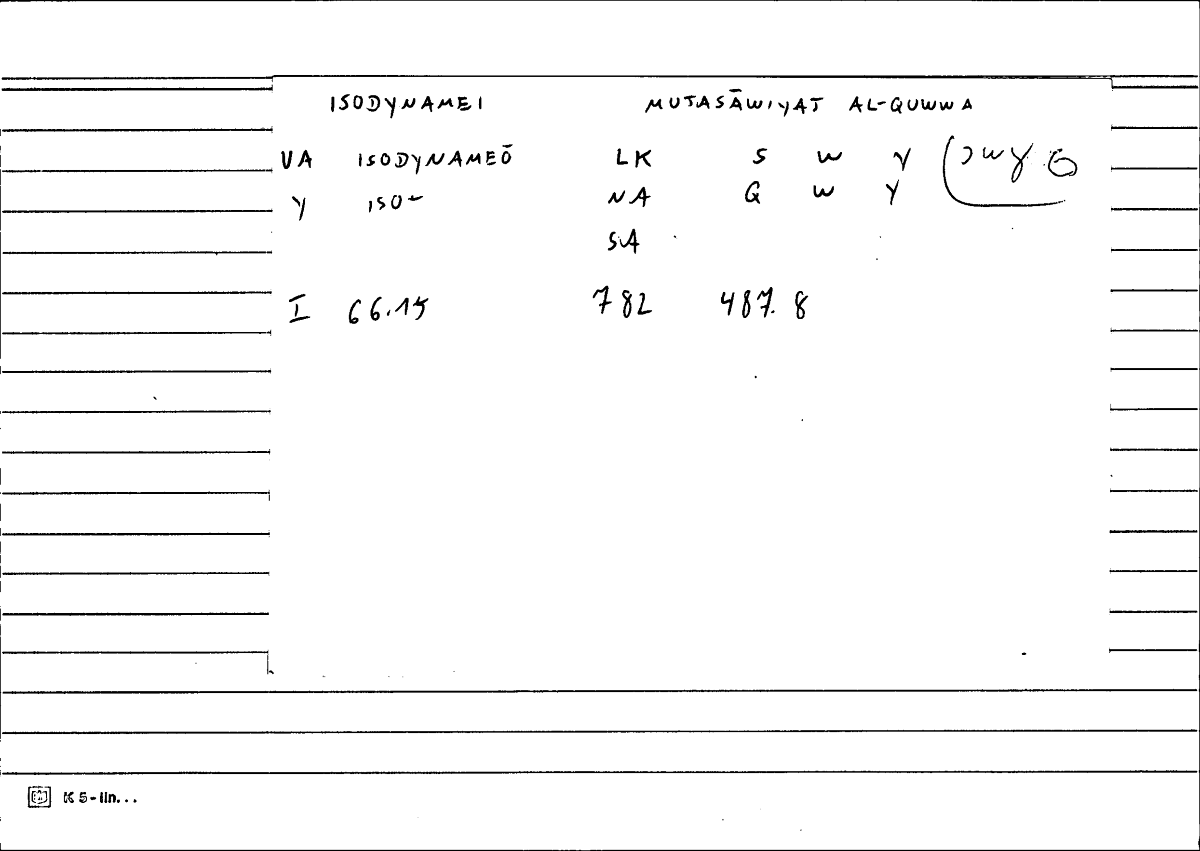 ISODYNAMEI MUTASĀWIYAT AL-QUWWA
VA ISODYNAMEŌ LK S W Y
Y ISO- NA Q W Y
SA
I 66.15 782 487.8
K 5-lin...